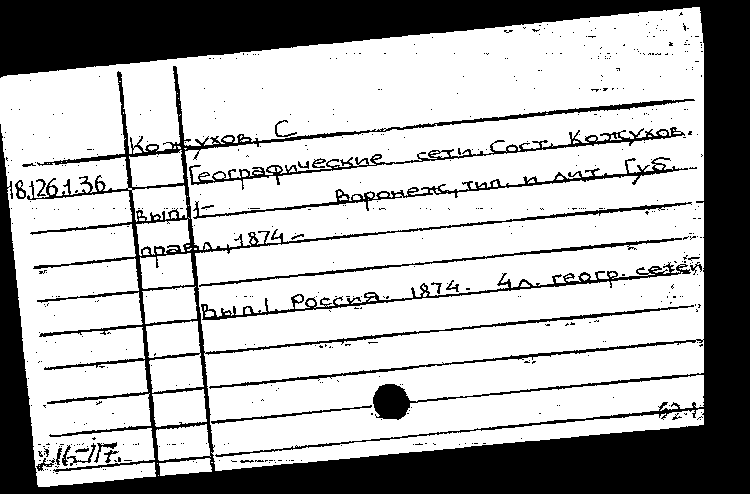 Кожухов, С
18.126.1.36. Географические сети. Сост. Кожухов.
Вып. 1- Воронеж, тип. и лит. Губ.
правл., 1874 –
Вып.1. Россия. 1874. 4л. геогр. сетей
62-1
216-117.